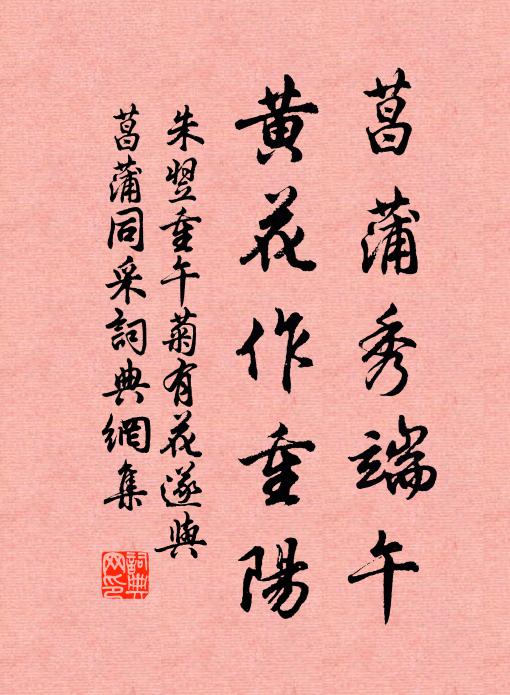 菖蒲秀端午
黃花作重陽
朱翌重午菊有花遂與
菖蒲同采詞典網集
詞典
网印